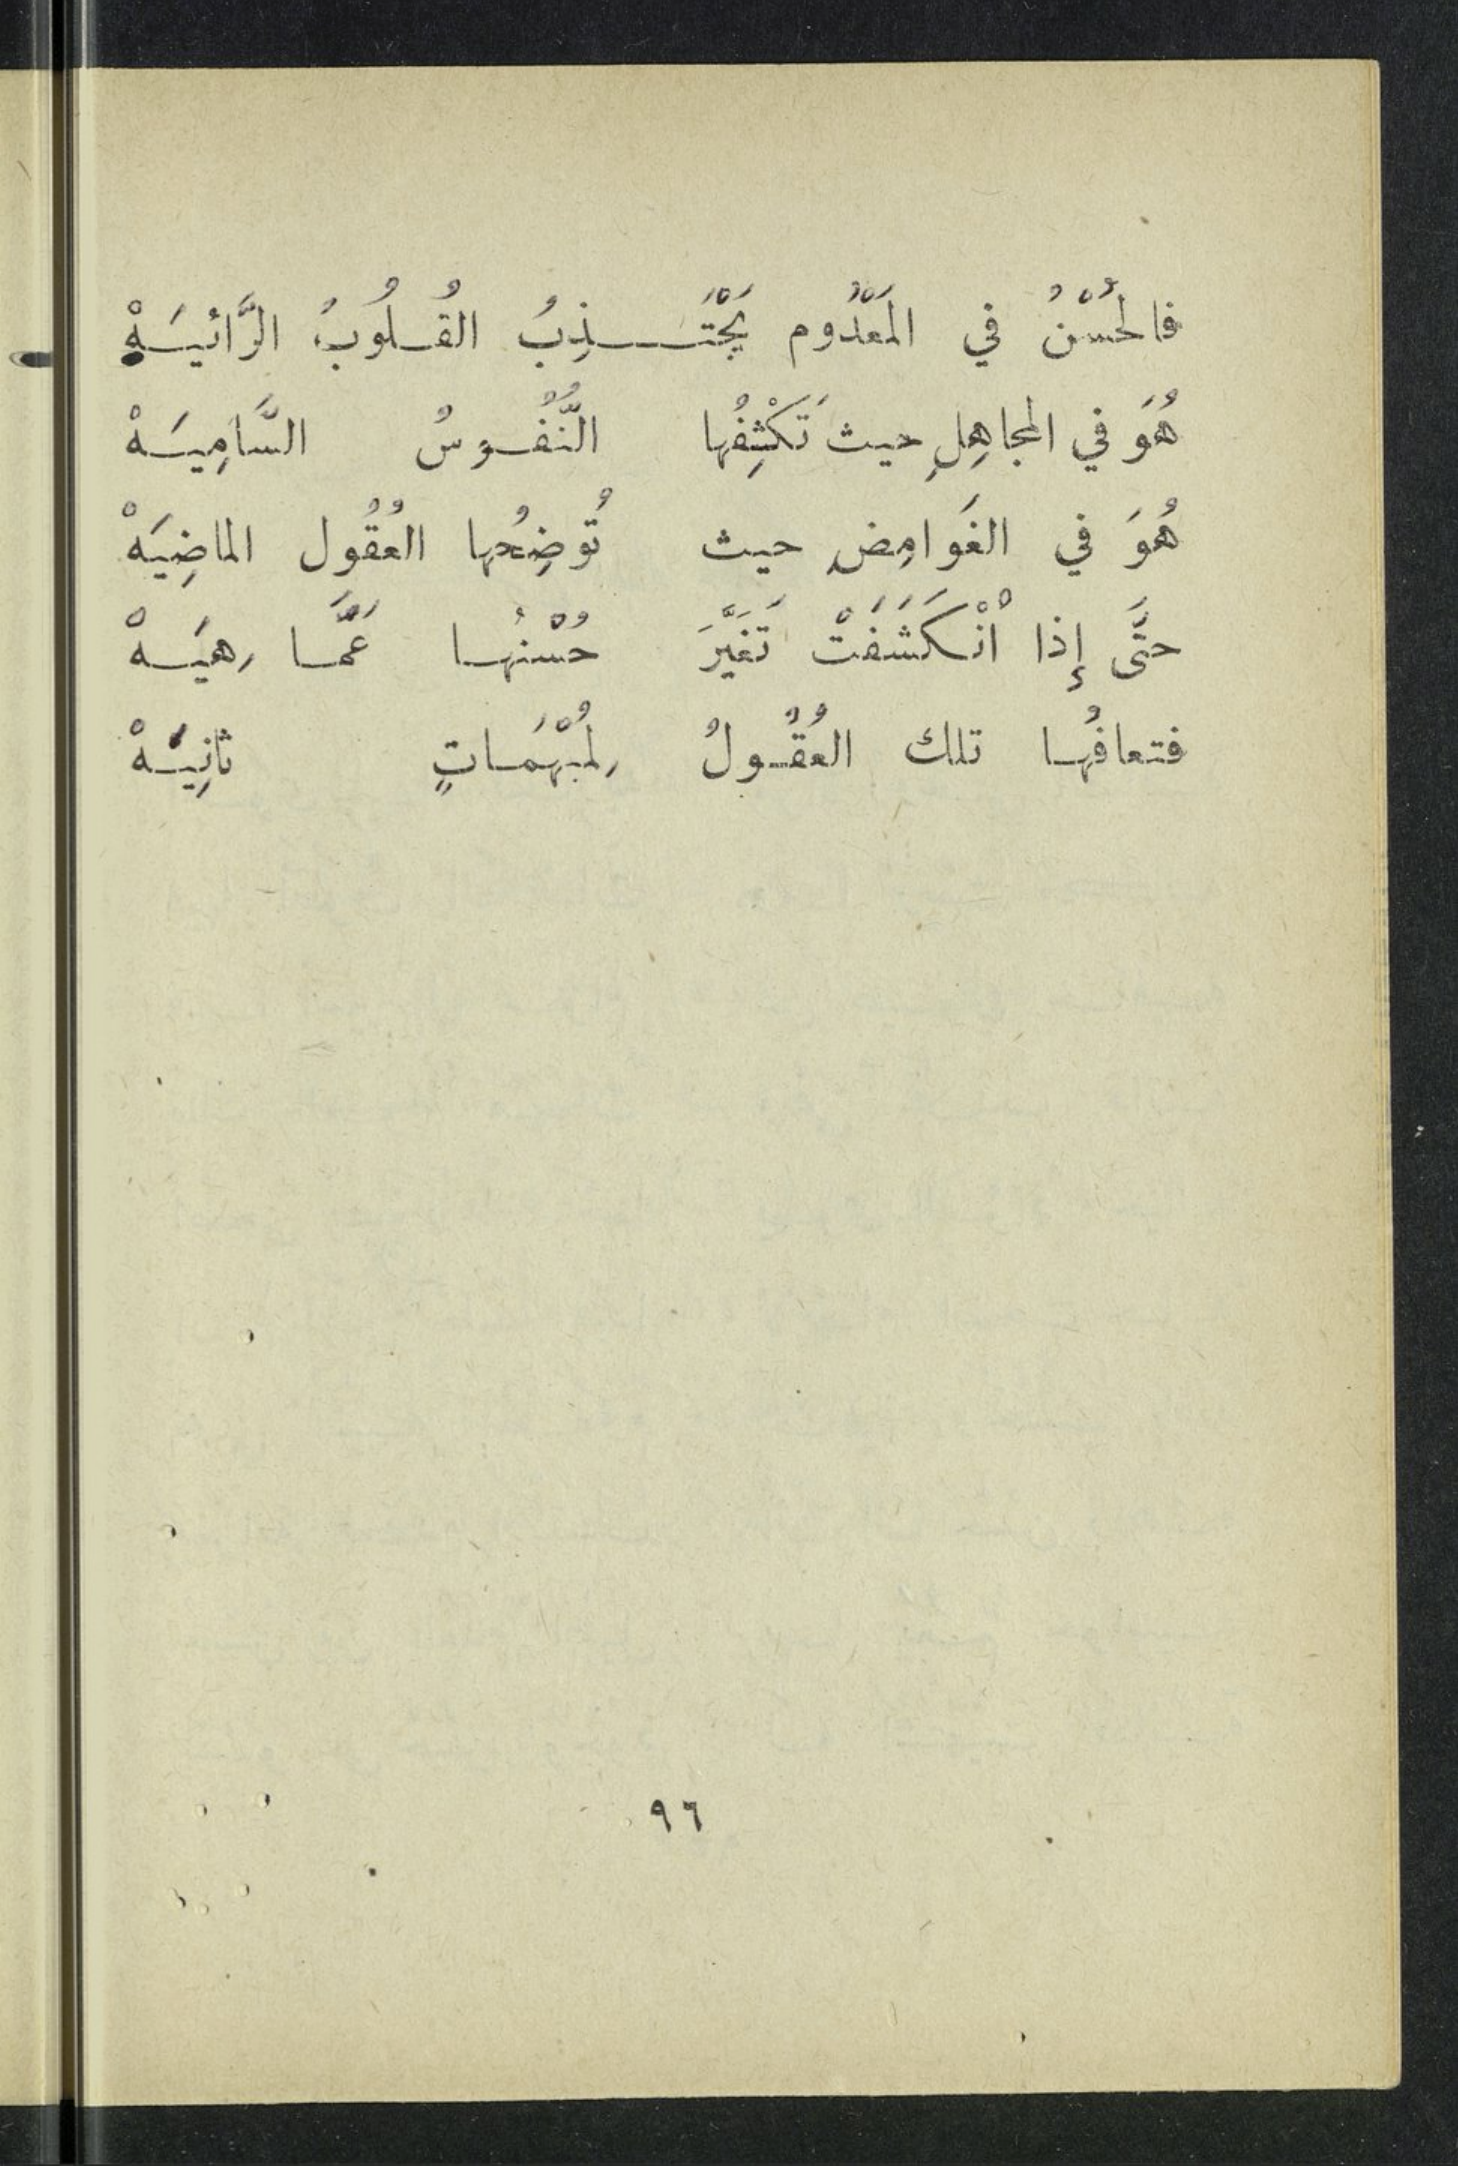 فالحُسْنُ في المَعْدُوم يَجْتَـــذِبُ القُـلُوبُ الرَّائيـَـهْ
هُوَ في المجاهِلِ حيث تَكْثِفُها النُّفُـوسُ السَّامِيـَـهْ
هُوَ في الغَوامِضِ حيث تُوضِحُها العُقُول الماضِيَهْ
حتَّى إِذا اْنْـكَشَفَتْ تَغَيَّرَ حُسْنُهـا عَمَّـا هِيَـهْ
فتعافُهـا تلك العُقُـولُ لِمُبْهَمـاتٍ ثانِيـَـهْ
٩٦